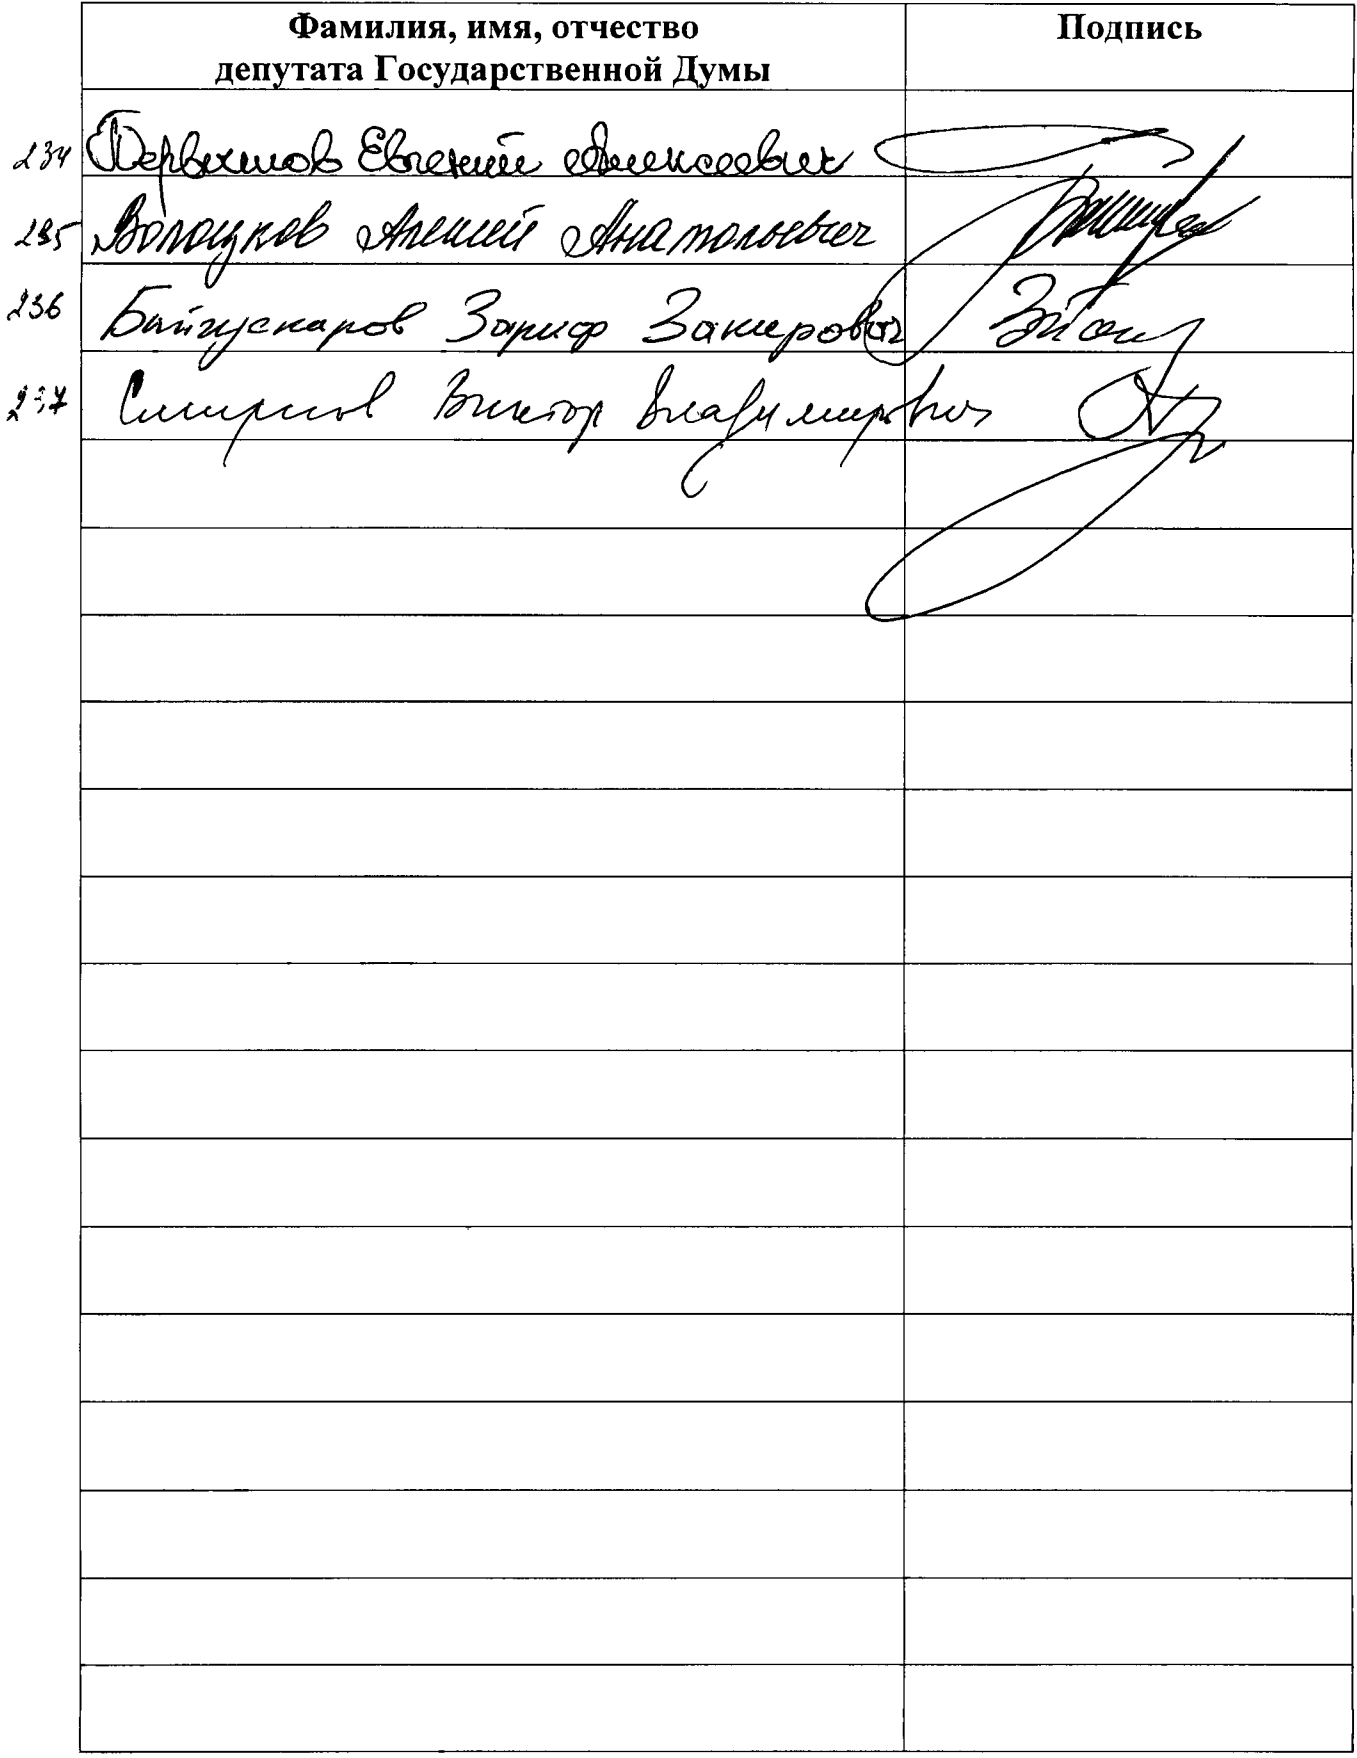 Фамилия, имя, отчество
депутата Государственной Думы
Подпись
234 Первышов Евгений Алексеевич
235 Волоцков Алексей Анатольевич
236 Байгускаров Зариф Закирович
237 Смирнов Виктор Владимирович